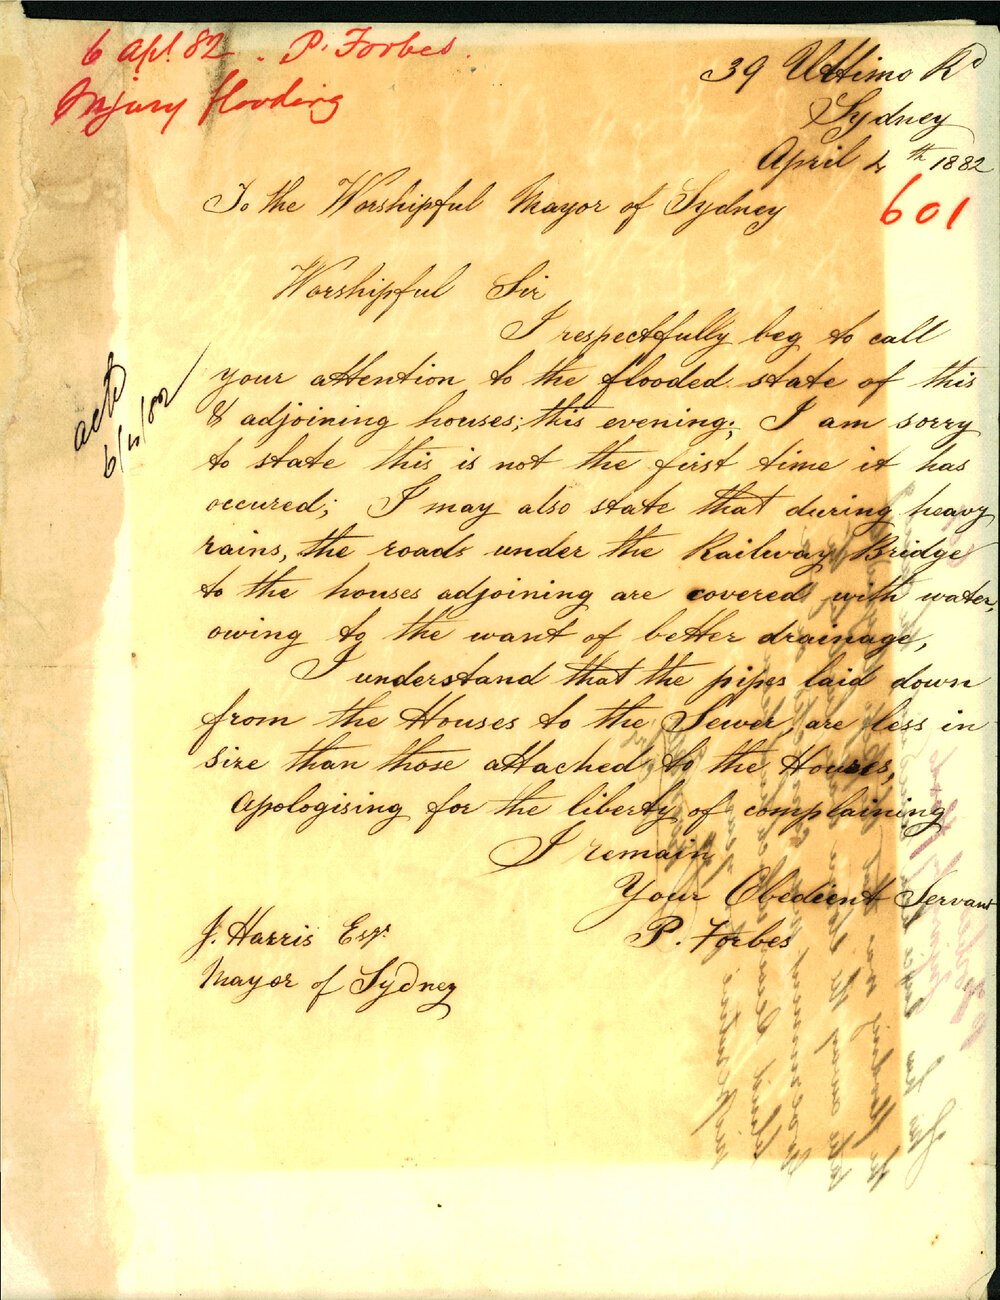 6 Apl. 82. P. Forbes.
Injury flooding
39 Ultimo Rd
Sydney
April 4th 1882
601
To the Worshipful Mayor of Sydney
Worshipful Sir
I respectfully beg to call
your attention to the flooded state of this
& adjoining houses; this evening; I am sorry
to state this is not the first time it has
occured; I may also state that during heavy
rains, the roads under the Railway Bridge
to the houses adjoining are covered with water,
owing to the want of better drainage,
I understand that the pipes laid down
from the Houses to the Sewer, are less in
size than those attached to the Houses,
Apologising for the liberty of complaining
I remain
Your Obedient Servant
P. Forbes
J. Harris Esqr.
Mayor of Sydney
6/4/82